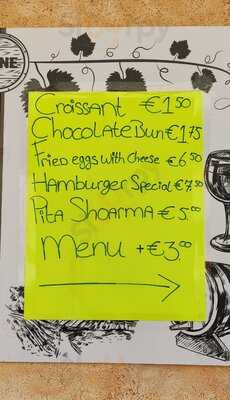 NE
Croissant €1.50
Chocolate Bun €1.75
Fried eggs with cheese €6.50
Hamburger Special €7.50
Pita Shoarma €5.00
Menu +€3.00